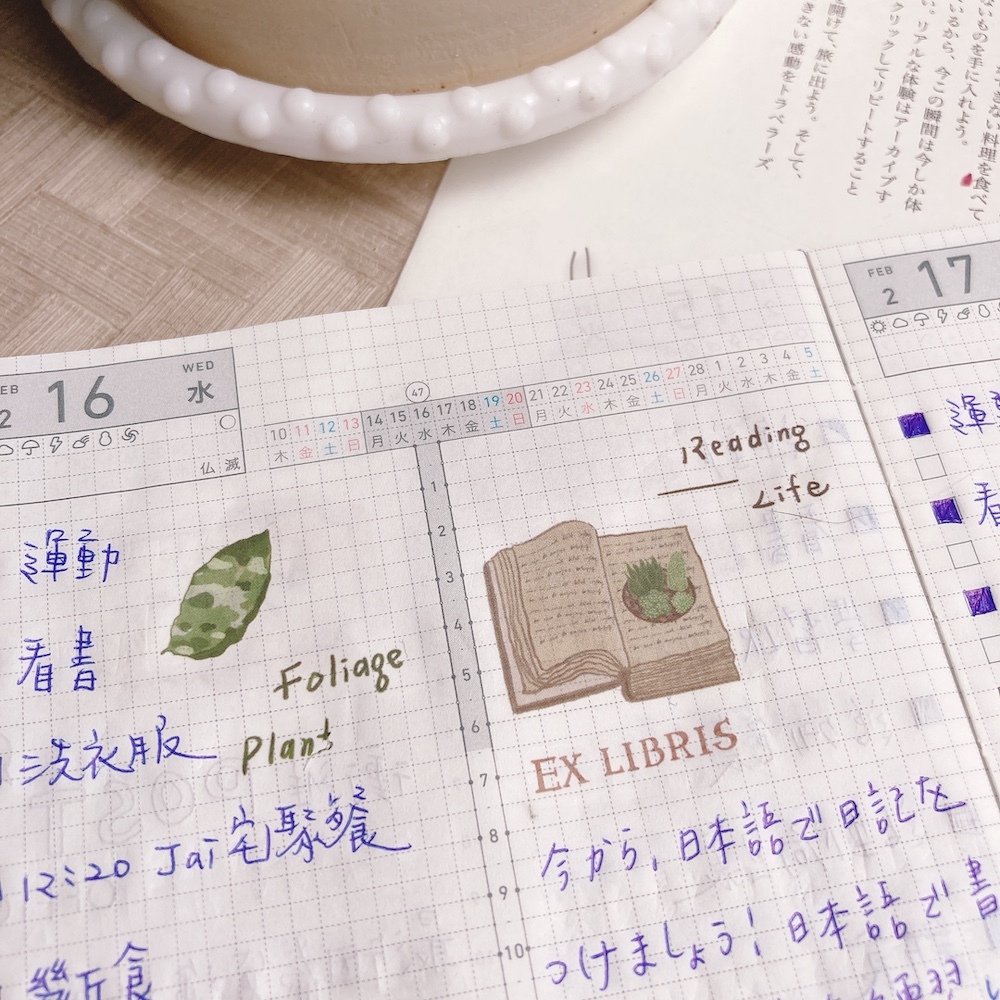 ないものを手に入れよう。
いるから、今この瞬間は今しか体
い。リアルな体験はアーカイブす
クリックしてリピートすること
を開けて、旅に出よう。そして、
きない感動をトラベラーズ
2 16 WED 水
仏滅
47
10 11 12 13 14 15 16 17 18 19 20 21 22 23 24 25 26 27 28 1 2 3 4 5
木 金 土 日 月 火 水 木 金 土 日 月 火 水 木 金 土 日 月 火 水 木 金 土
運動
看書
洗衣服
12:20 Jai宅聚餐
Foliage
Plant
1
2
3
4
5
6
7
8
9
10
Reading
Life
EX LIBRIS
今から,日本語で日記を
つけましょう!日本語で書
FEB 2 17
運動
看